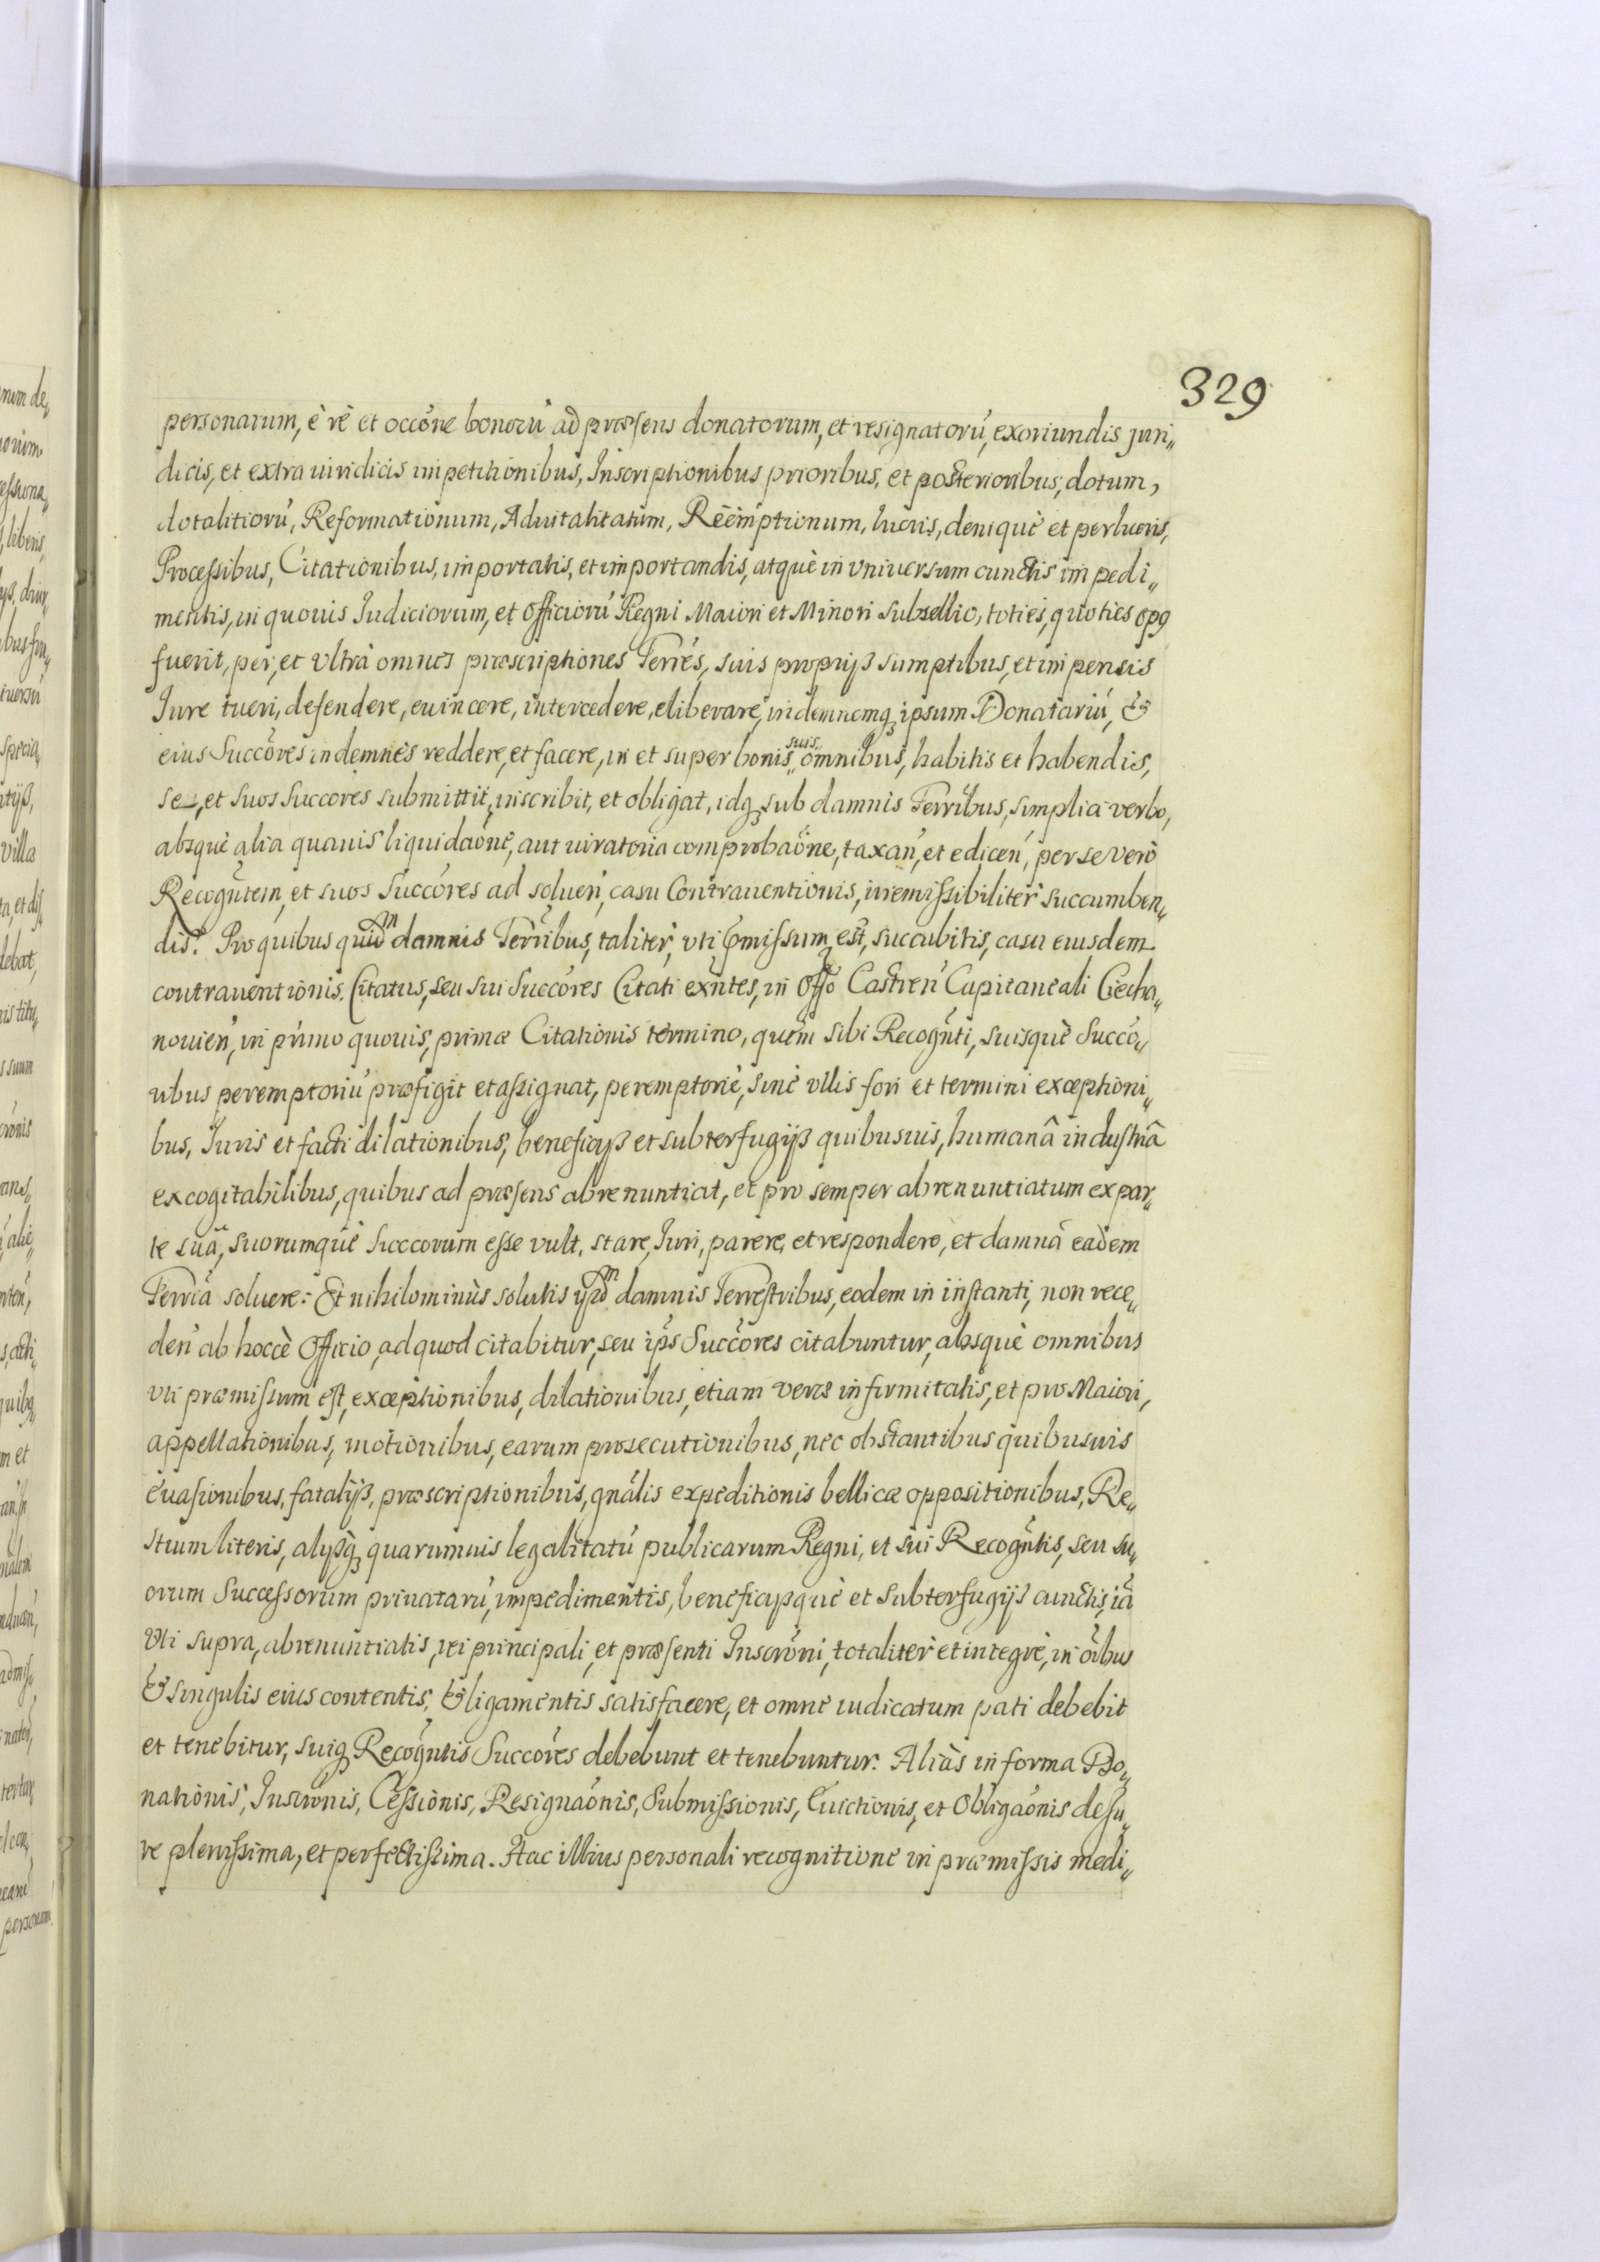 329
personarum, è rè et occóne bonorú ad præsens donatorum, et resignatorú, exoriundis juri„
dicis, et extraiuridicis impetitionibus, Inscriptionibus prioribus, et posterioribus, dotum,
dotalitiorú, Reformationum, Aduitalitatum, Reèmptionum, lucris, deniquè et perlucris,
Processibus, Citationibus, importatis, et importandis, atquè in vniuersum cunctis impedi„
mentis, in quouis Iudiciorum, et Officiorú Regni Maiori et Minori Subsellio, toties, quoties op9
fuerit, per, et vltrà omnes præscriptiones Terrés, suis proprijs sumptibus, et impensis
Iure tueri, defendere, euincere, intercedere, eliberare, indemnemq3 ipsum Donatariú, &
eius Succóres indemnes reddere, et facere, in et super bonis suis omnibus, habitis et habendis,
se, et suos Succores submittit, inscribit, et obligat, idq3 sub damnis Terribus, simplici verbo,
absquè alia quauis liquidaóne, aut iuratoria comprobaóne, taxań, et ediceń, per se verò
Recogńtem, et suos Succóres ad solueń, casu Contrauentionis, irremissibiliter succumben„
dis. Pro quibus quid͞m damnis Terribus, taliter, vti p̃missum est, succubitis, casu eiusdem
contrauentionis. Citatus, seu sui Succóres Citati exńtes, in Offo Castreń Capitaneali Ciecha„
nouień, in primo quouis, primæ Citationis termino, quem sibi Recogńti, suisquè Succo„
ribus peremptoriú præfigit et assignat, peremptoriè, sinè vllis fori et termini exceptioni„
bus, Iuris et facti dilationibus, beneficijs et subterfugijs quibusuis, humanâ industriâ
excogitabilibus, quibus ad præsens abrenuntiat, et pro semper abrenuntiatum ex par„
te suâ, suorumquè Succorum esse vult, stare, Iuri, parere, et respondere, et damna eadem
Terria soluere: Et nihilominùs solutis ijsd͞m damnis Terrestribus, eodem in instanti, non rece„
deń ab hoccè Officio, ad quod citabitur, seu ips Succóres citabuntur, absquè omnibus
vti præmissum est, exceptionibus, dilationibus, etiam veræ infirmitatis, et pro Maiori,
appellationibus, motionibus, earum prosecutionibus, nec obstantibus quibusuis
euasionibus, fatalijs, præscriptionibus, gnàlis expeditionis bellicæ oppositionibus, Re„
strum literis, alijsq3 quarumuis legalitatú publicarum Regni, et sui Recogńtis, seu su„
orum Successorum priuatarú, impedimentis, beneficijsquè et subterfugijs cunctis, ia
vti supra, abrenuntiatis, rei principali, et præsenti Inscróni, totaliter et integrè, in oíbus
& singulis eius contentis, & ligamentis satisfacere, et omne iudicatum pati debebit
et tenebitur, suiq3 Recogńtis Succóres debebunt et tenebuntur. Aliàs in forma Do„
nationis, Inscrónis, Cessionis, Resignaónis, Submissionis, Euictionis, et Obligaónis de Iu„
re plenissima, et perfectissima. Hac illius personali recognitione in præmissis medi„